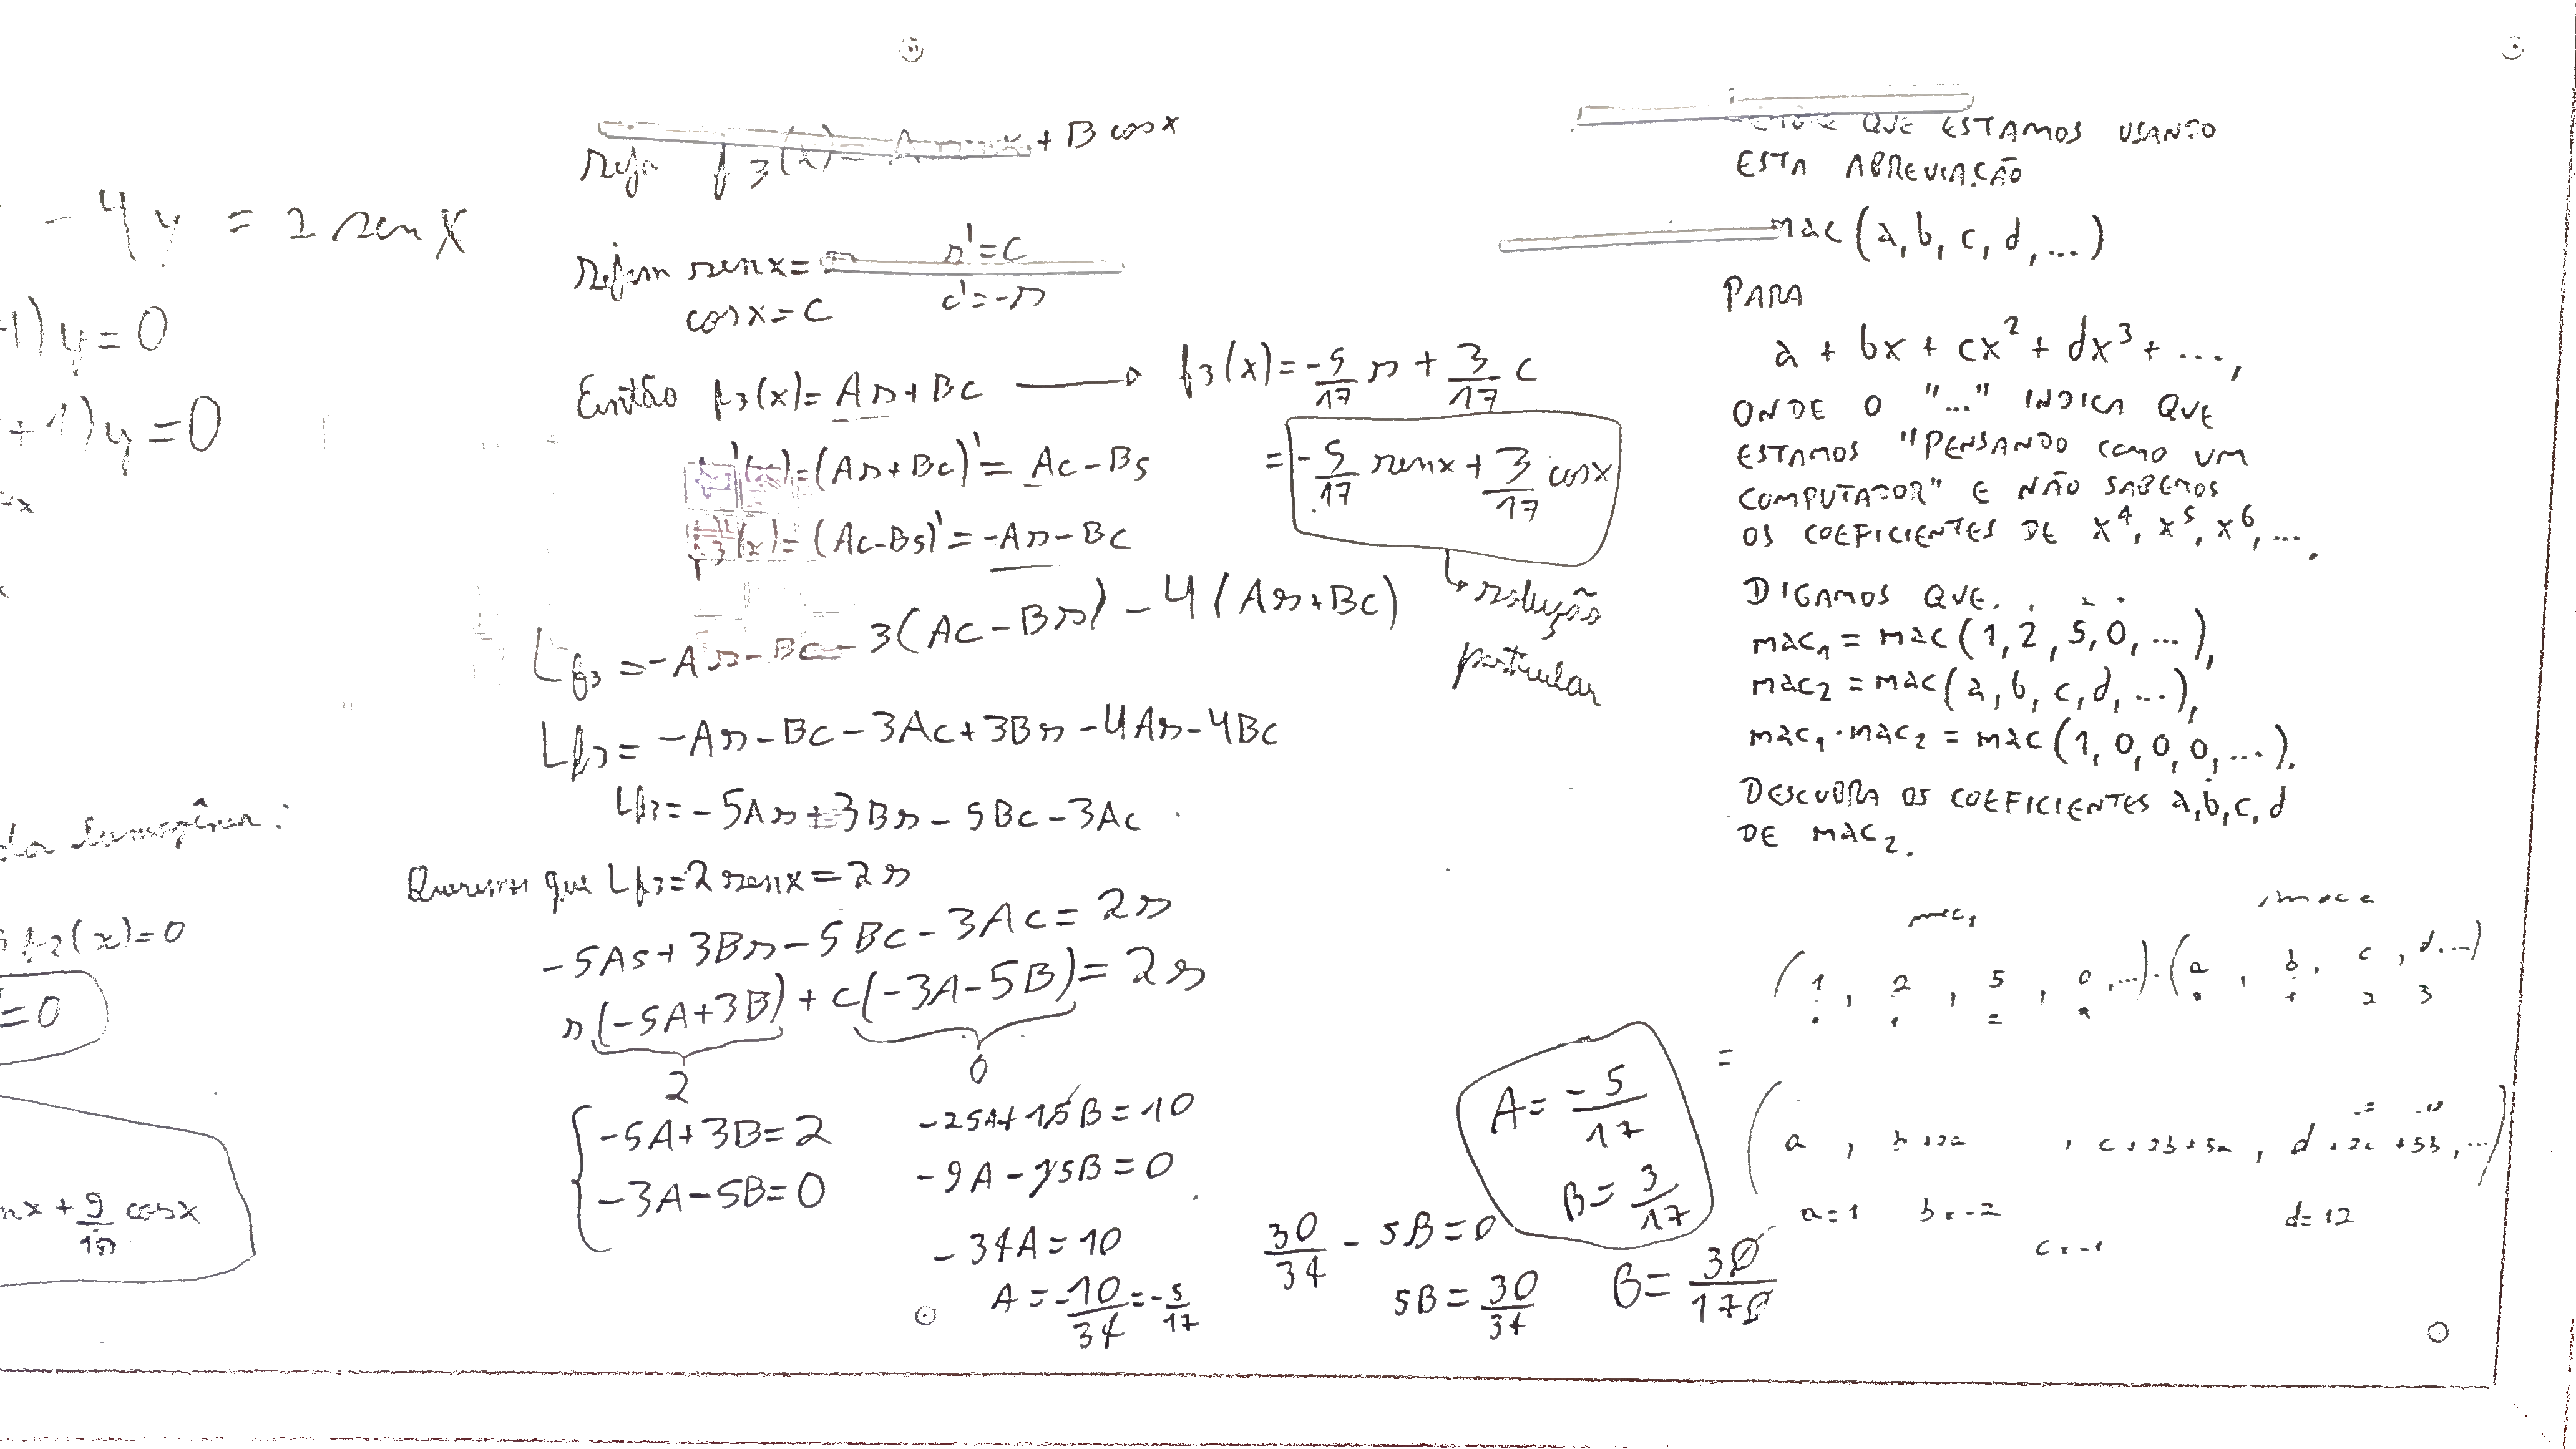 - 4y = 2 sen x
1) y = 0
+1) y = 0
-x
f2(x) = 0
= 0
nx + 9/17 cosx
Seja f3(x) = A sen x + B cos x
Sejam sen x = s s' = c
cos x = c c' = -s
Então f3(x) = As + Bc → f3(x) = -5/17 s + 3/17 c
f3'(x) = (As + Bc)' = Ac - Bs = -5/17 sen x + 3/17 cos x
f3''(x) = (Ac - Bs)' = -As - Bc
solução
particular
Lf3 = -As - Bc - 3(Ac - Bs) - 4(As + Bc)
Lf3 = -As - Bc - 3Ac + 3Bs - 4As - 4Bc
Lf3 = -5As + 3Bs - 5Bc - 3Ac
Queremos que Lf3 = 2 sen x = 2s
-5As + 3Bs - 5Bc - 3Ac = 2s
s(-5A + 3B) + c(-3A - 5B) = 2s
2 0
-5A + 3B = 2 -25A + 15B = 10
-3A - 5B = 0 -9A - 15B = 0
-34A = 10
A = -10/34 = -5/17
30/34 - 5B = 0
5B = 30/34
B = 30/170
A = -5/17
B = 3/17
QUE ESTAMOS USANDO
ESTA ABREVIAÇÃO
mac(a, b, c, d, ...)
PARA
a + bx + cx² + dx³ + ...,
ONDE O "..." INDICA QUE
ESTAMOS "PENSANDO COMO UM
COMPUTADOR" E NÃO SABEMOS
OS COEFICIENTES DE x⁴, x⁵, x⁶, ... .
DIGAMOS QUE
mac₁ = mac(1, 2, 5, 0, ...),
mac₂ = mac(a, b, c, d, ...),
mac₁ · mac₂ = mac(1, 0, 0, 0, ...).
DESCUBRA OS COEFICIENTES a, b, c, d
DE mac₂.
mac₁ mac₂
(1, 2, 5, 0, ...) · (a, b, c, d, ...)
=
(a, b + 2a, c + 2b + 5a, d + 2c + 5b, ...)
a = 1 b = -2 d = 12
c = -1